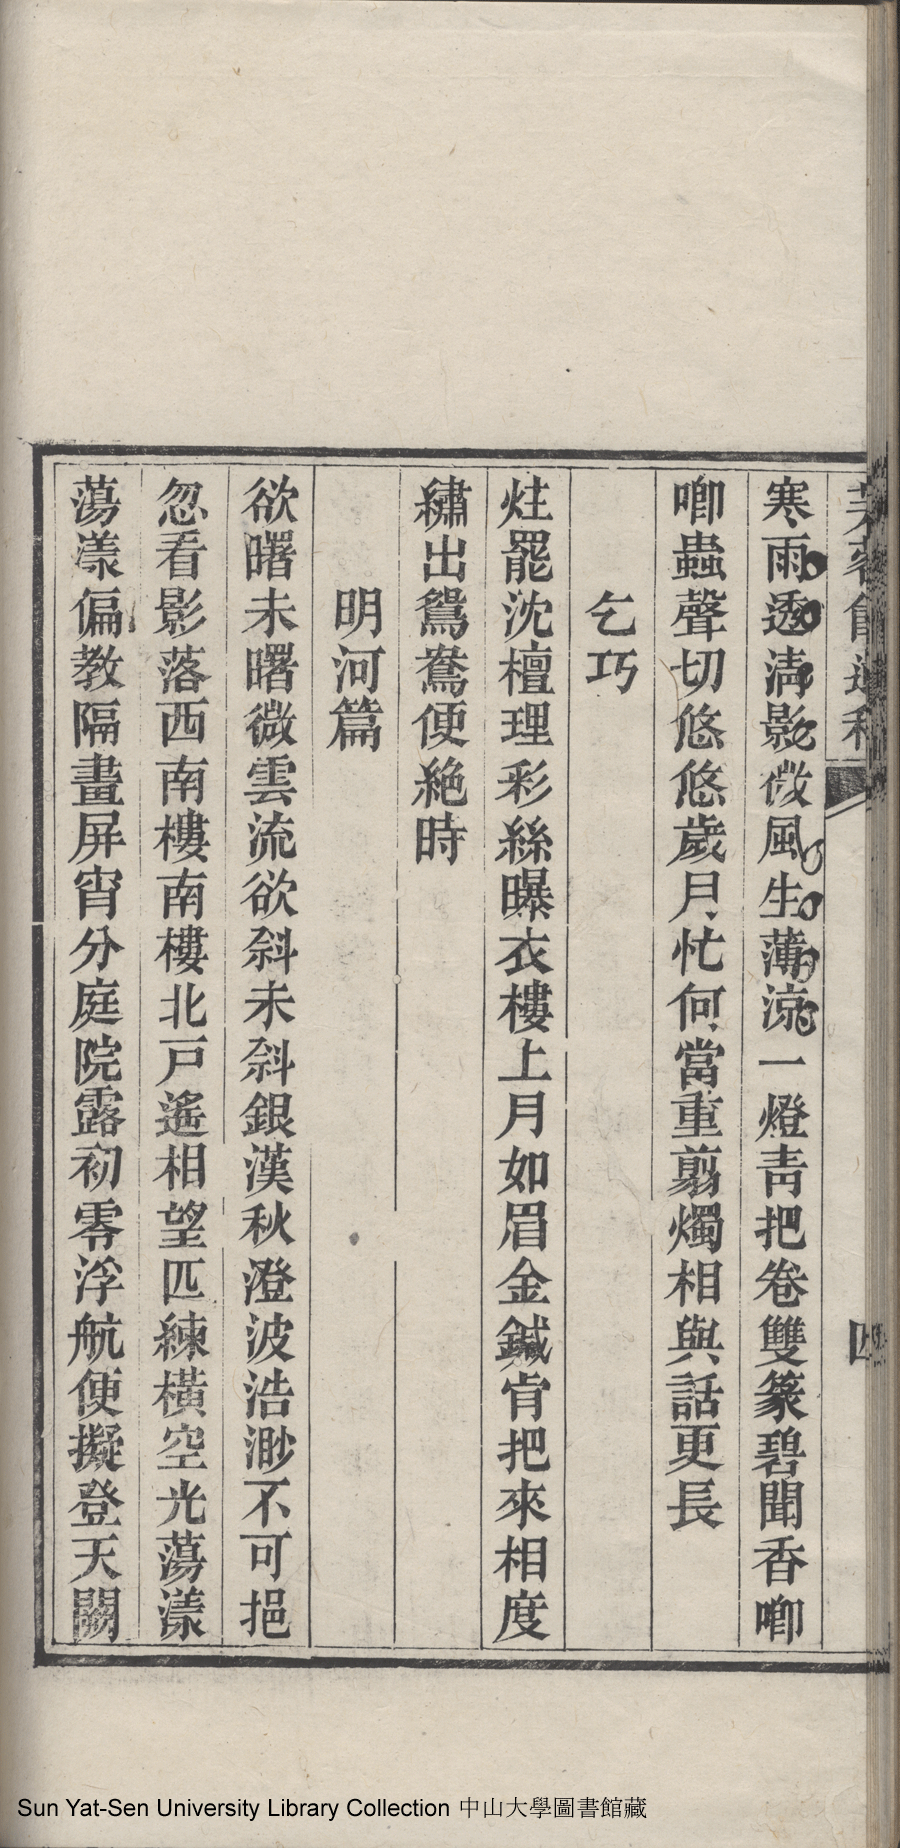 寒雨透清影微風生薄涼一燈青把卷雙篆碧聞香喞
喞蟲聲切悠悠歲月忙何當重剪燭相與話更長
乞巧
炷罷沈檀理彩絲曝衣樓上月如眉金鍼肯把來相度
繡出鴛鴦便絕時
明河篇
欲曙未曙微雲流欲斜未斜銀漢秋澄波浩渺不可挹
忽看影落西南樓南樓北戸遙相望匹練橫空光蕩漾
蕩漾偏教隔畫屏宵分庭院露初零浮航便擬登天闕
Sun Yat-Sen University Library Collection 中山大學圖書館藏